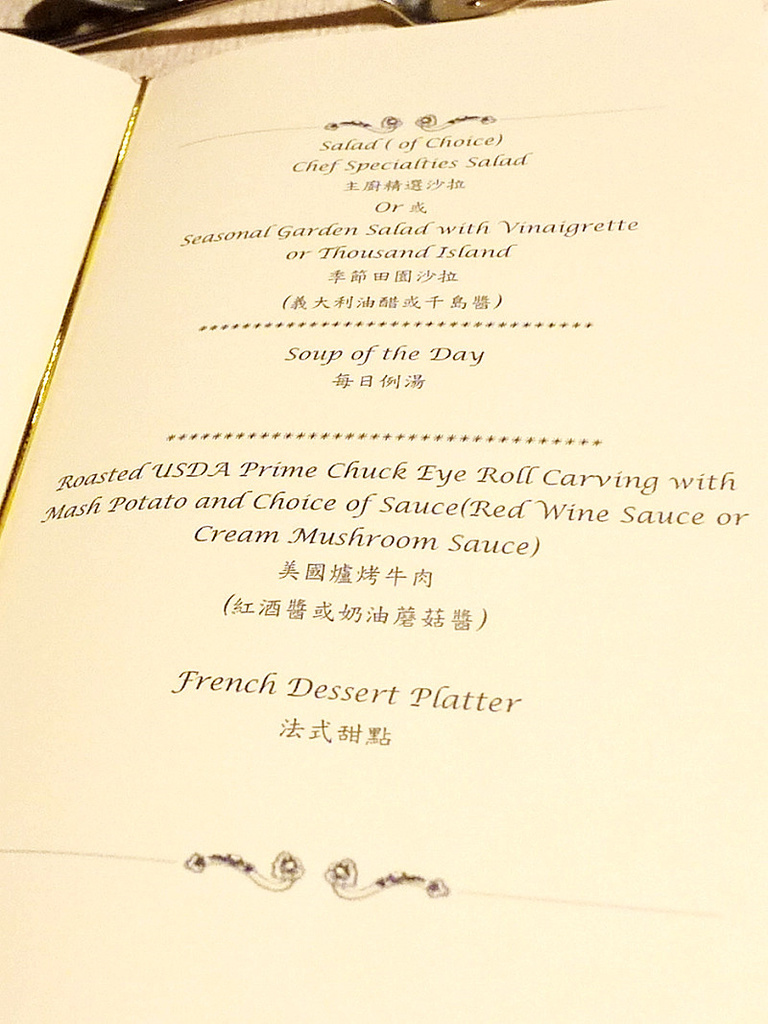 Salad ( of Choice)
Chef Specialties Salad
主廚精選沙拉
Or 或
Seasonal Garden Salad with Vinaigrette
or Thousand Island
季節田園沙拉
(義大利油醋或千島醬)
Soup of the Day
每日例湯
Roasted USDA Prime Chuck Eye Roll Carving with
Mash Potato and Choice of Sauce(Red Wine Sauce or
Cream Mushroom Sauce)
美國爐烤牛肉
(紅酒醬或奶油蘑菇醬)
French Dessert Platter
法式甜點